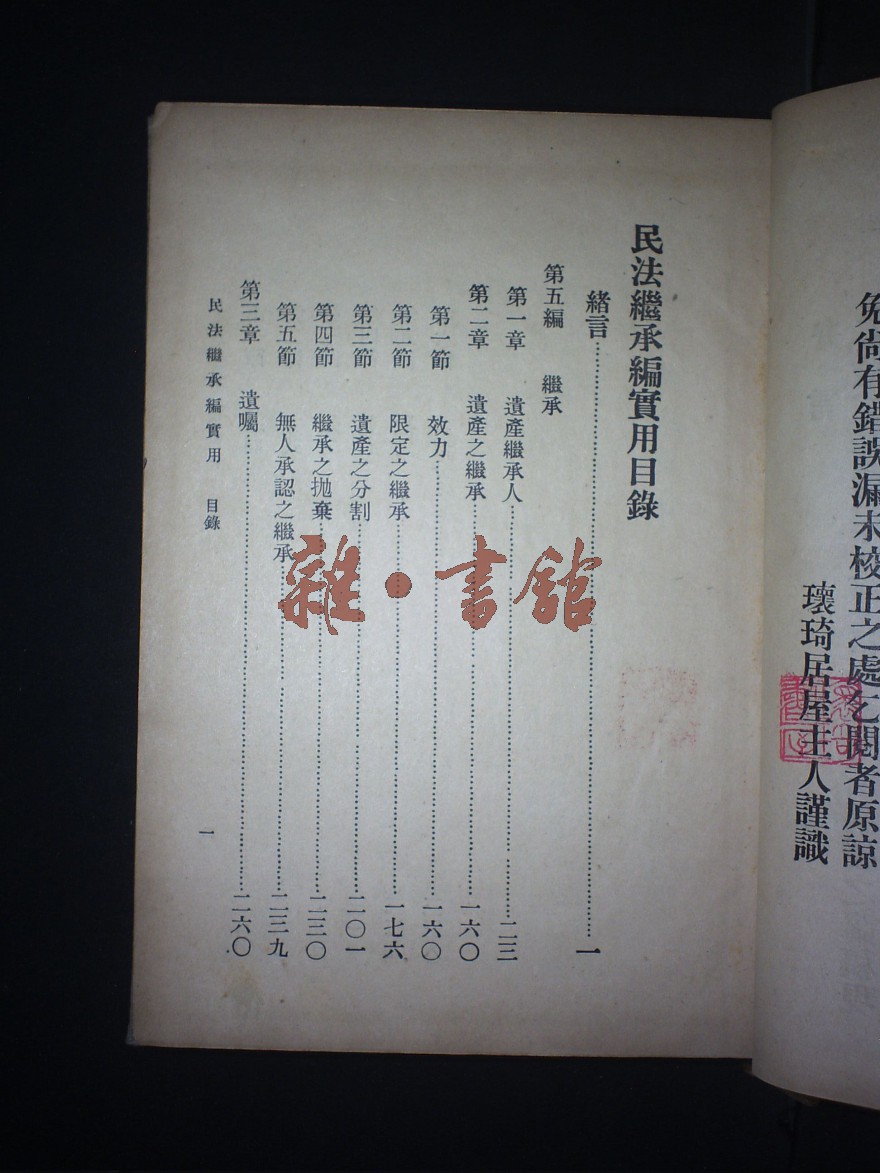 免尚有錯誤漏未校正之處乞閱者原諒
瓌琦居屋主人謹識
民法繼承編實用目錄
緒言……一
第五編 繼承
第一章 遺產繼承人……二三
第二章 遺產之繼承……一六〇
第一節 效力……一六〇
第二節 限定之繼承……一七六
第三節 遺產之分割……二〇一
第四節 繼承之拋棄……二三〇
第五節 無人承認之繼承……二三九
第三章 遺囑……二六〇
民法繼承編實用 目錄
一
雜·書館